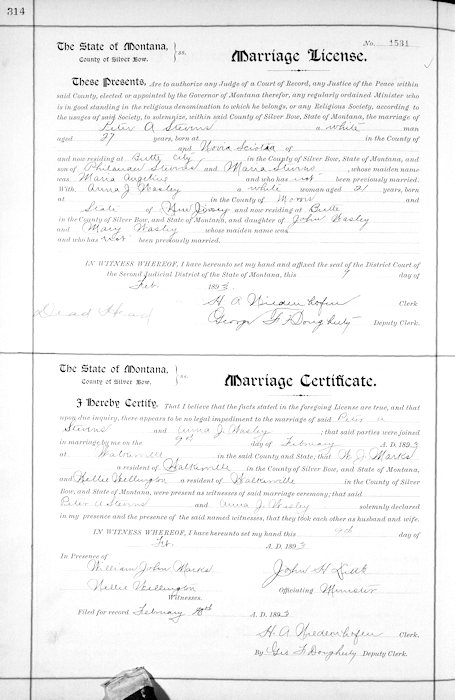 314
The State of Montana, } ss.
County of Silver Bow.
No. 1531
Marriage License.
These Presents, Are to authorize any Judge of a Court of Record, any Justice of the Peace within
said County, elected or appointed by the Governor of Montana therefor, any regularly ordained Minister who
is in good standing in the religious denomination to which he belongs, or any Religious Society, according to
the usages of said Society, to solemnize, within said County of Silver Bow, State of Montana, the marriage of
Peter A Stevens a white man
aged 27 years, born at in the County of
and Novia Sciotia of
and now residing at Butte City in the County of Silver Bow, State of Montana, and
son of Philander Stevens and Maria Stevens whose maiden name
was Maria and who has not been previously married.
With Anna J Wasley a white woman aged 21 years, born
at in the County of Morris and
State of New Jersey and now residing at Butte
in the County of Silver Bow, and State of Montana, and daughter of John Wasley
and Mary Wasley whose maiden name was
and who has not been previously married.
IN WITNESS WHEREOF, I have hereunto set my hand and affixed the seal of the District Court of
the Second Judicial District of the State of Montana, this 9 day of
Feb. 1893.
H. A Niedenhofen Clerk.
Dead Head
George F Dougherty Deputy Clerk.
The State of Montana, } ss.
County of Silver Bow.
Marriage Certificate.
I Hereby Certify, That I believe that the facts stated in the foregoing License are true, and that
upon due inquiry, there appears to be no legal impediment to the marriage of said Peter A
Stevens and Anna J. Wasley ; that said parties were joined
in marriage by me on the 9th day of February A. D. 1893
at Walkerville in the said County and State; that W. J. Marks
a resident of Walkerville in the County of Silver Bow, and State of Montana,
and Nellie Wellington a resident of Walkerville in the County of Silver
Bow, and State of Montana, were present as witnesses of said marriage ceremony; that said
Peter A Stevens and Anna J. Wasley solemnly declared
in my presence and the presence of the said named witnesses, that they took each other as husband and wife.
IN WITNESS WHEREOF, I have hereunto set my hand this 9th day of
Feb. A. D. 1893
In Presence of
William John Marks John H
Nellie Wellington Officiating Minister
Witnesses.
Filed for record February A. D. 1893
H. A. Niedenhofen Clerk.
By Geo F Dougherty Deputy Clerk.